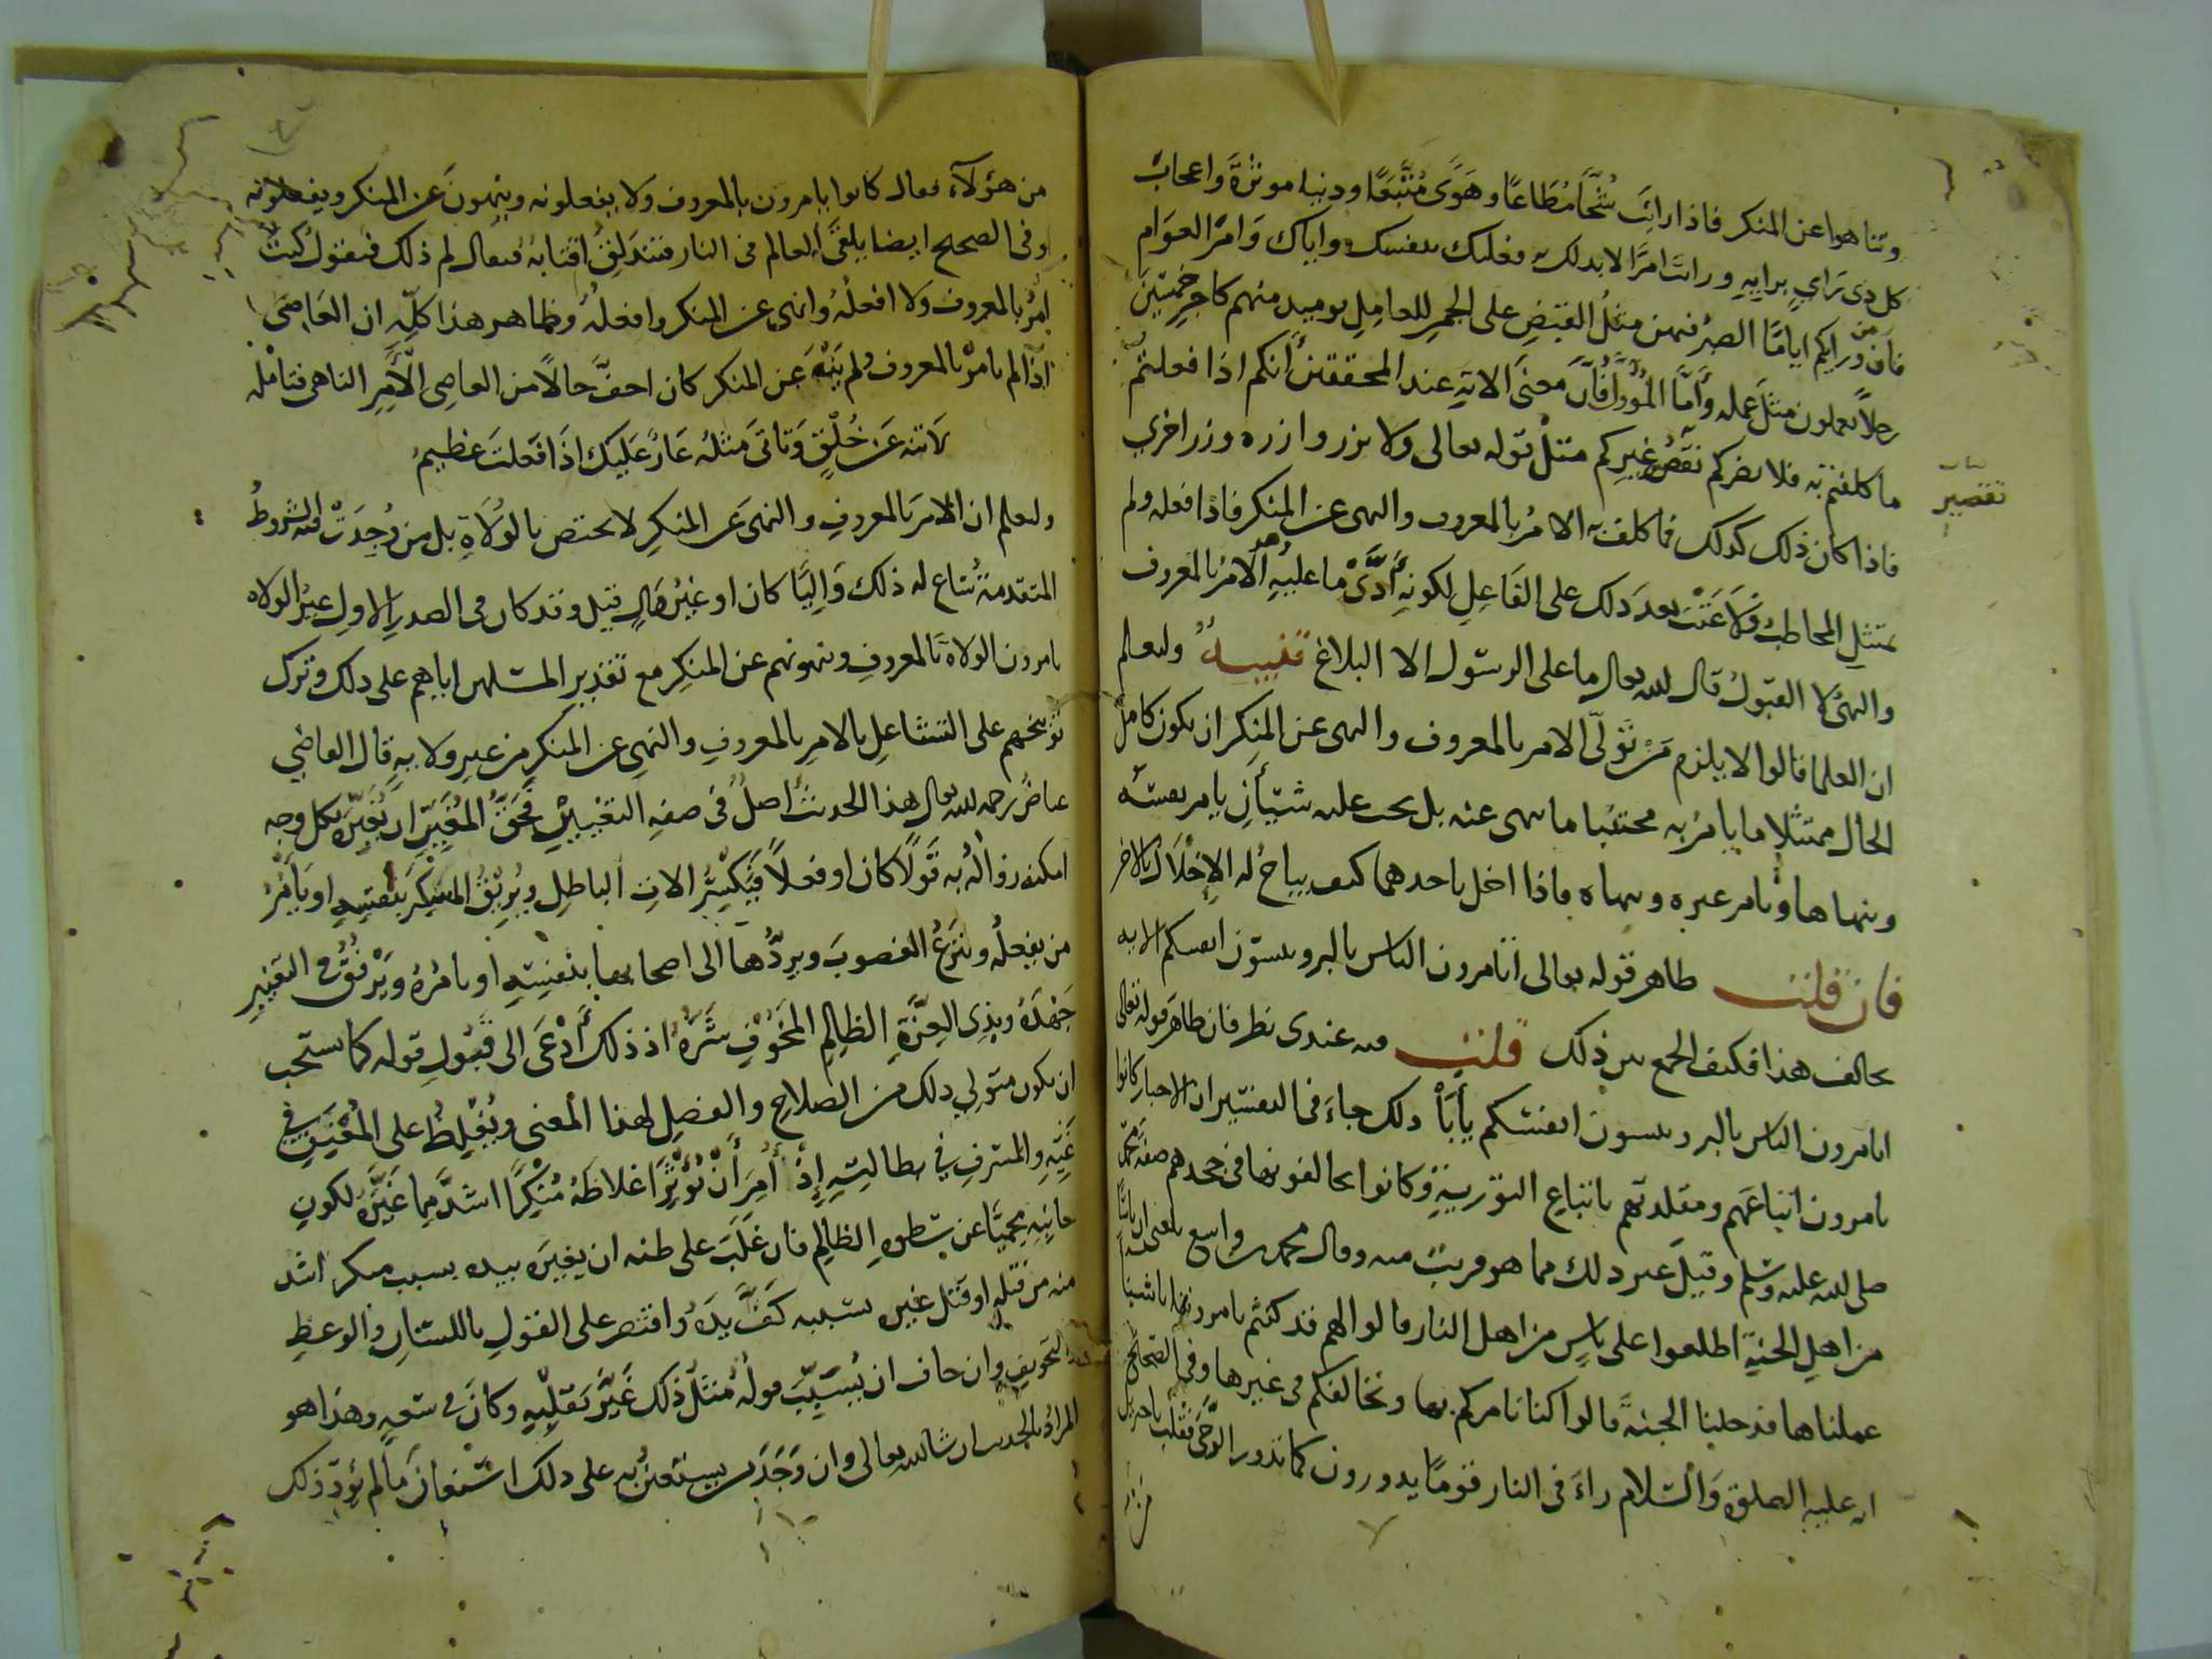 وتناهوا عن المنكر فاذا رايت شُحًّا مُطَاعًا وهَوًى مُتَّبَعًا ودنيا موثرةً واعجابَ
كل ذى رَايٍ برايِهِ ورايتَ امرًا لابد لك به فعليك بنفسك واياك وَامرَ العوَام
فان من ورايكم ايامًا الصبرُ فيهن مثلُ القبضِ على الجمرِ للعامِلِ يوميذ منهم كاجرِ خمسين
رجلاً يعملون مثلَ عمله وَأمَّا المُؤوَّلُ فَاَنَّ معنى الاية عند المحققين أنكم اذا فعلتم
ما كلفتم به فلا يضركم نقص غيركم مثلُ قوله تعالى ولا تزر وازرة وزر اخرى
تقصير
فاذا كان ذلك كذلك فما كلف به الامرُ بالمعروف والنهى عن المنكر فاذا فعله ولم
يمتثلِ المخاطبُ فلَا عَتْبَ بعدَ ذلك على الفاعِلِ لكونِهِ أدَّى ما عليهِ الامرُ بالمعروف
والنهىُ لا القبولُ قال الله تعالى ما على الرسول الا البلاغ تنبيه وليعلم
ان العلما قالوا لا يلزم مَنْ تَوَلَّى الامر بالمعروف والنهى عن المنكرِ ان يكون كامل
الحال ممتثلا ما يامرُ به مجتنبا ما ينهى عنه بل يجب عليه شيئانِ يامر نفسَه
وينهاها ويامر غيره وينهاه فاذا اخل باحدهما كيف يباحُ له الإخلَال بالاخر
فان قلت ظاهر قوله تعالى اتامرون الناس بالبر وتنسون انفسكم الاية
يخالف هذا فكيف الجمع بين ذلك قلت فيه عندى نظر فان ظاهر قوله تعالى
اتامرون الناس بالبر وتنسون انفسَكم يأبَا ذلك جاءَ فى التفسير ان الاحبار كانوا
يامرون اتباعَهم ومقلديهم باتباع التوريةِ وكانوا يخالفونها فى جحدهم صفةَ محمّد
صلى الله عليه وسلم وقيل غير ذلك مما هو قريبٌ منه وقال محمد بن واسع بلغنى ان ناسًا
من اهلِ الجنةِ اطلعوا على ناسٍ من اهل النار قالوا لهم قد كنتم تامروننا باشيا
عملناها فدخلنا الجنةَ قالوا كنا نامركم بها ونخالفكم فى غيرها وفى الصحيح
انه عليه الصلوة وَالسّلام راءَ فى النار قومًا يدورون كما تدور الرَّحَى فقلت يا جبريل
من هؤلآء فقال كانوا يامرون بالمعروف ولا يفعلونه وينهونَ عن المنكر ويفعلونه
وفى الصحيح ايضا يلقىَ العالم فى النار فتندلقُ اقتابهُ فيقال لم ذلك فيقولُ كنتُ
امُرُ بالمعروف ولا افعلُهُ وانهى عن المنكر وافعلُهُ وظاهر هذا كلِّهِ ان العَاصى
اذَا لم يامرْ بالمعروف ولم يَنْهَ عن المنكر كان اخفَّ حالاً من العاصى الآمِرِ الناهى فتامله
لا تنه عَن خُلُقٍ وَتَاتى مَثلَهُ عَارٌ عَلَيكَ اذَا فَعَلتَ عَظيمُ
وليعلم ان الامرَ بالمعروفِ والنهىَ عن المنكرِ لا يختص بالوُلَاةِ بل من وُجِدَتْ فيه الشروطُ
المتقدمةُ ساغ له ذلك وَاليًا كان او غيْرَ وَالٍ قيل وقد كان فى الصدر الاولِ غيرُ الولاه
يامرون الولاةَ بالمعروفِ وينهونهم عن المنكرِ مع تقدير المسلمين اياهم على ذلك وترك
توبيخهم على التشاغلِ بالامرِ بالمعروفِ والنهى عن المنكرِ من غير ولايةٍ قال القاضى
عياضٌ رحمه الله تعالى هذا الحديثُ اصلٌ فى صفةِ التغييرِ فَحَقُّ المُغَيِّرِ ان يُغَيِّرَه بكل وجه
امكنه زوالُهُ به قَولًا كان او فعلاً فَيَكْسِرُ الاتِ الباطلِ ويُرِيقُ المسْكِرَ بنفسِهِ او يَأمُرُ
من يفعلُهُ وينزعُ الغصوبَ ويردُّها الى اصحابها بنفسِهِ او يامُرُهُ ويَرْفُقُ فى التغيير
جَهْدَهُ وبذِى العِزَّةِ الظالِمِ المَخُوْفِ شَرُّهُ اذ ذلك أدْعَى الى قَبُولِ قوله كما يستحب
ان يكون متولى ذلك من الصلاحِ والفضلِ لهذا المعنى ويُغْلِظُ على
غَيِّهِ والمسْرفِ فى بطالتِهِ إذْ أمِنَ أنْ تُؤَثِّرَ اغلاظُهُ مُنْكِرًا اشدَّ مِمّا غَيَّرهُ لكونِ
جانِبِه محميًّا عن سطوةِ الظالِمِ فان غَلَبَ على ظنه ان يغيّرَه بيده يسبب منكر اشد
منه من قتله او قتل غيره بسببه كَفَّ يَدَهُ واقتصر على القولِ باللسانِ والوعظِ
والتخويفِ وان خاف ان يُسَبِّبَ قولُهُ مثلُ ذلك غَيَّرَ بقلبِهِ وكانَ فى سَعةٍ وهذا هو
المرادُ بالحديث ان شاالله تعالى وان وَجَدَ من يستعينُ به على ذلك استعانَ مالم يُؤدّ ذلك